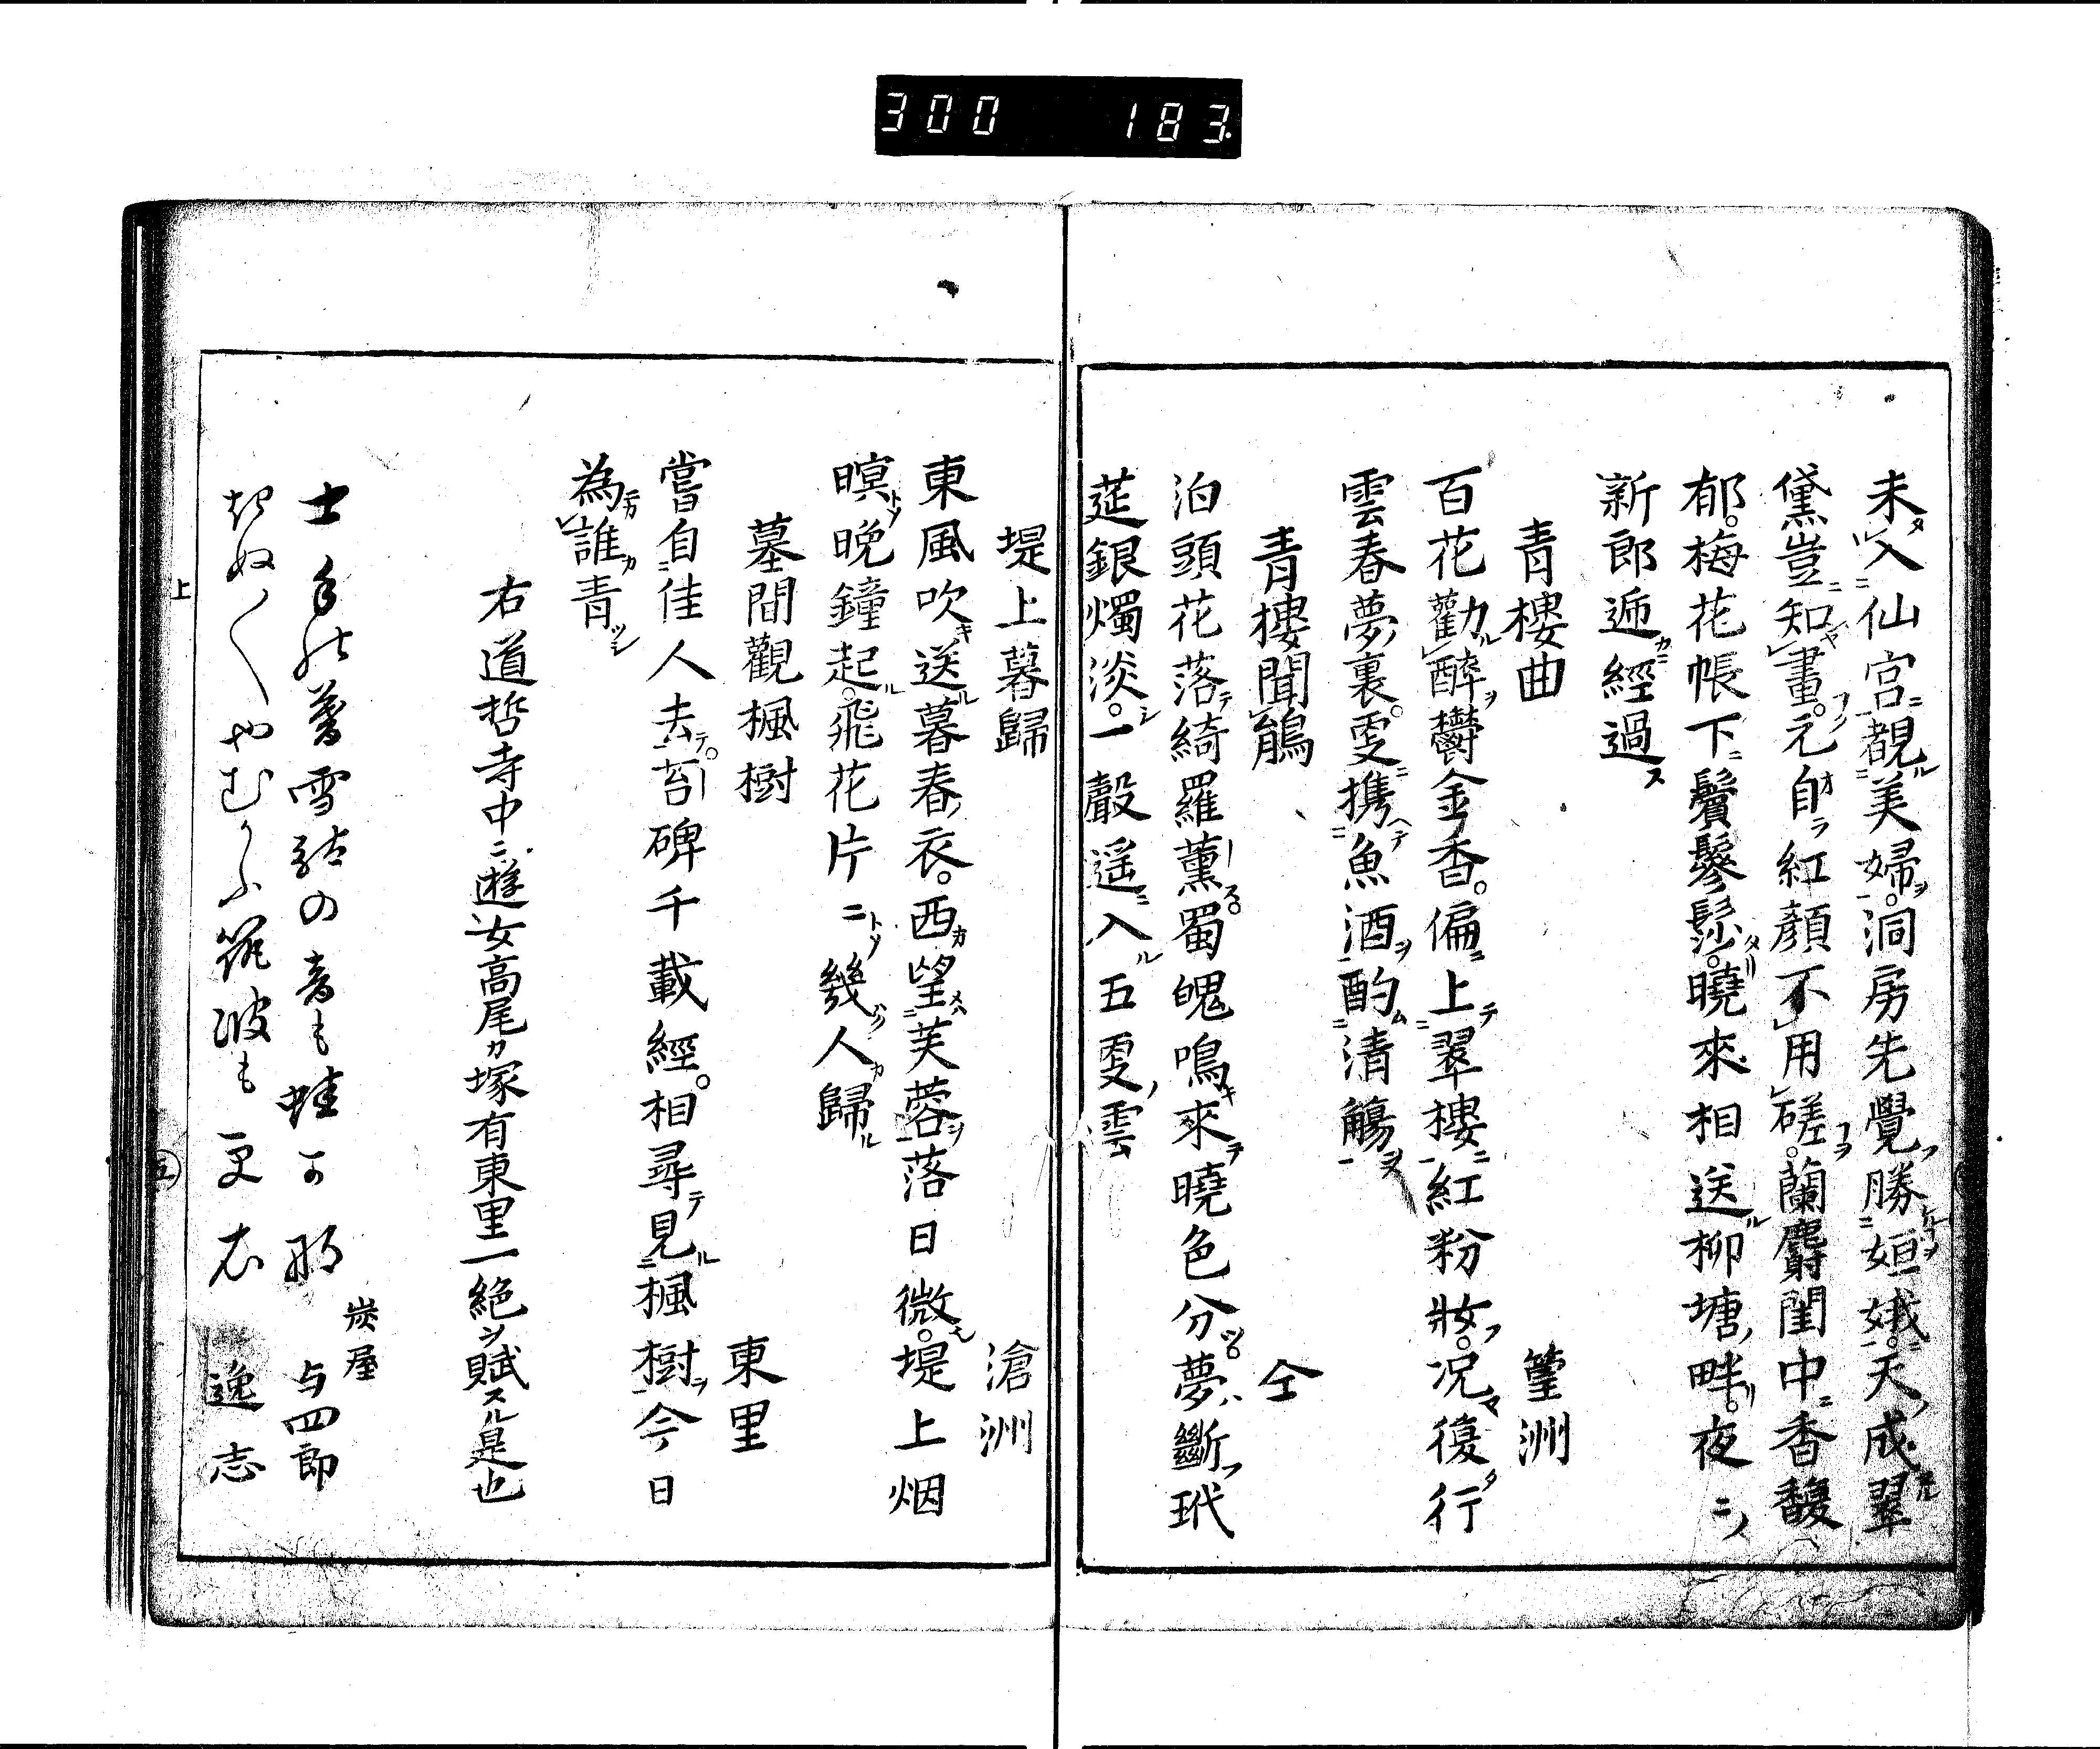 300 183
未入仙宮覩美婦。洞房先覺勝姮娥。天成翠
黛豈知畫。元自紅顏不用磋。蘭麝閨中香馥
郁。梅花帳下鬢鬖髿。曉來相送柳塘畔。夜ニ
新郎遞經過
青樓曲 篁洲
百花勸醉鬱金香。偏上翠樓紅粉妝。况復行
雲春夢裏。更携魚酒酌清觴
青樓聞鵑 仝
泊頭花落綺羅薫。蜀魄鳴來曉色分。夢斷玳
莚銀燭淡。一聲遥入五更雲
堤上暮歸 滄洲
東風吹送暮春衣。西望芙蓉落日微。堤上烟
暝晩鐘起。飛花片ニ幾人歸
墓間觀楓樹 東里
嘗自佳人去。苔碑千載經。相尋見楓樹今日
為誰青
右道哲寺中ニ遊女高尾カ塚有東里一絶ヲ賦スル是也
雪 の音も蛙 炭屋 与四郎
やむ 筑波も 逸志
上